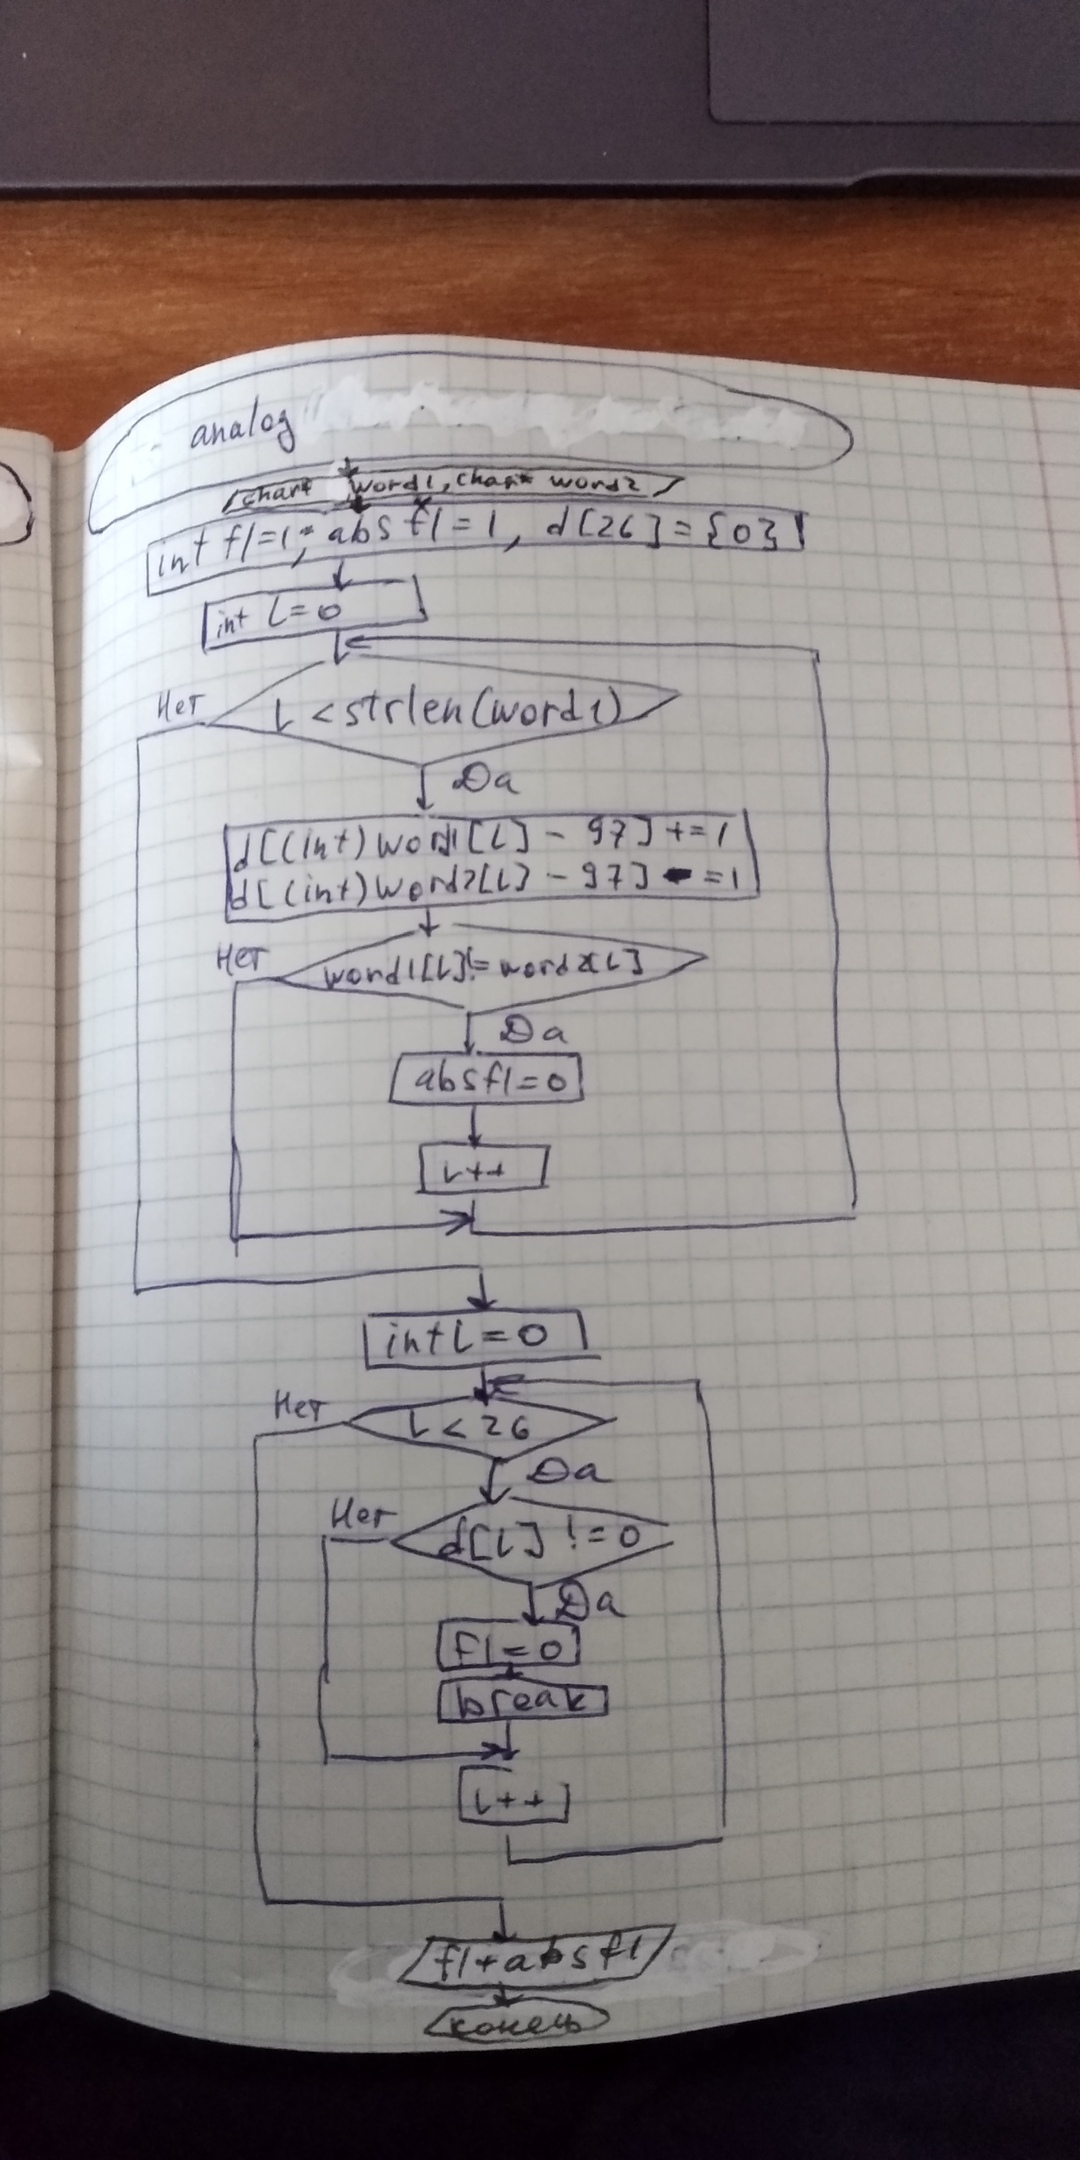 analog
char* word1, char* word2
int fl=1; absfl=1, d[26]={0}
int i=0
i<strlen(word1)
Нет
Да
d[(int)word1[i]-97]+=1
d[(int)word2[i]-97]-=1
Нет
word1[i]!=word2[i]
Да
absfl=0
i++
int i=0
Нет
i<26
Да
Нет
d[i]!=0
Да
fl=0
break
i++
fl+absfl
конець